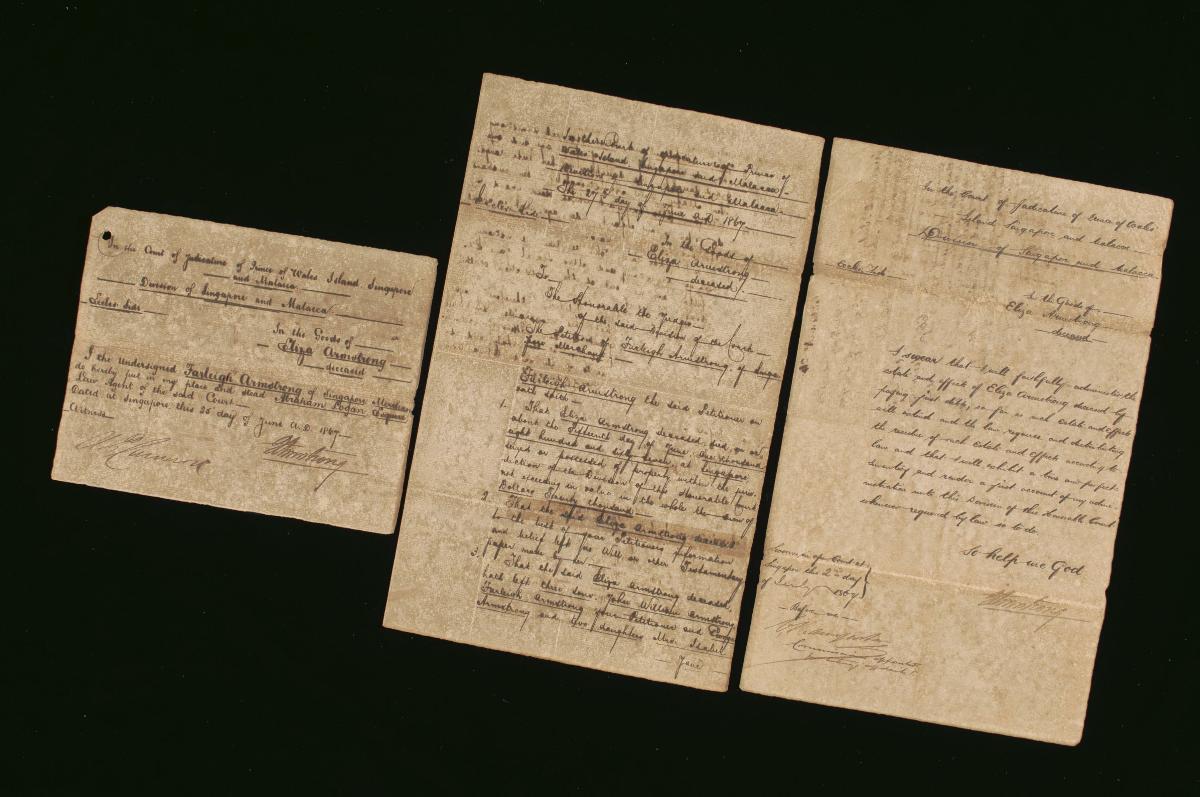 In the Court of Judicature of Prince of Wales Island Singapore
and Malacca
Division of Singapore and Malacca
In the Goods of
Eliza Armstrong
deceased
I the undersigned Farleigh Armstrong of Singapore Merchant
do hereby put in my place and stead Abraham Logan Esquire
Law Agent of the said Court
Dated at Singapore this 25 day of June A.D. 1867
Witness
Armstrong
In the Court of Judicature of Prince of
Wales Island Singapore and Malacca
Singapore and Malacca
The 27th day of June A.D. 1867
In the Goods of
Eliza Armstrong
deceased
To
The Honorable the Judges
of the said Division of the Court
The Petition of Farleigh Armstrong of Singa-
pore Merchant
Farleigh Armstrong the said Petitioner
saith
1. That Eliza Armstrong deceased, died, on or
about the Fifteenth day of June One thousand
eight hundred and sixty at Singapore
seized or possessed of property within the juris-
diction of the Division of the Honorable Court
not exceeding in value in the whole the sum of
Dollars Twenty thousand
2. That the said Eliza Armstrong deceased
to the best of your Petitioners information
and belief left no Will or other Testamentary
paper
3. That the said Eliza Armstrong deceased,
hath left three sons John William Armstrong
Farleigh Armstrong your Petitioner and
Armstrong and two daughters Mrs.
Jane
In the Court of Judicature of Prince of Wales
Island Singapore and Malacca
Division of Singapore and Malacca
In the Goods of
Eliza Armstrong
deceased
I swear that I will faithfully administer the
estate and effects of Eliza Armstrong deceased by
paying just debts, so far as estate and effects
will extend and the law requires and distributing
the residue of estate and effects according to
law and that I will exhibit a true and perfect
Inventory and render a just account of my admi-
nistration into this Division of the Court
whenever required by law so to do.
So help me God
Armstrong
Sworn in Court at
Singapore the 2nd day
of July 1867
Before me